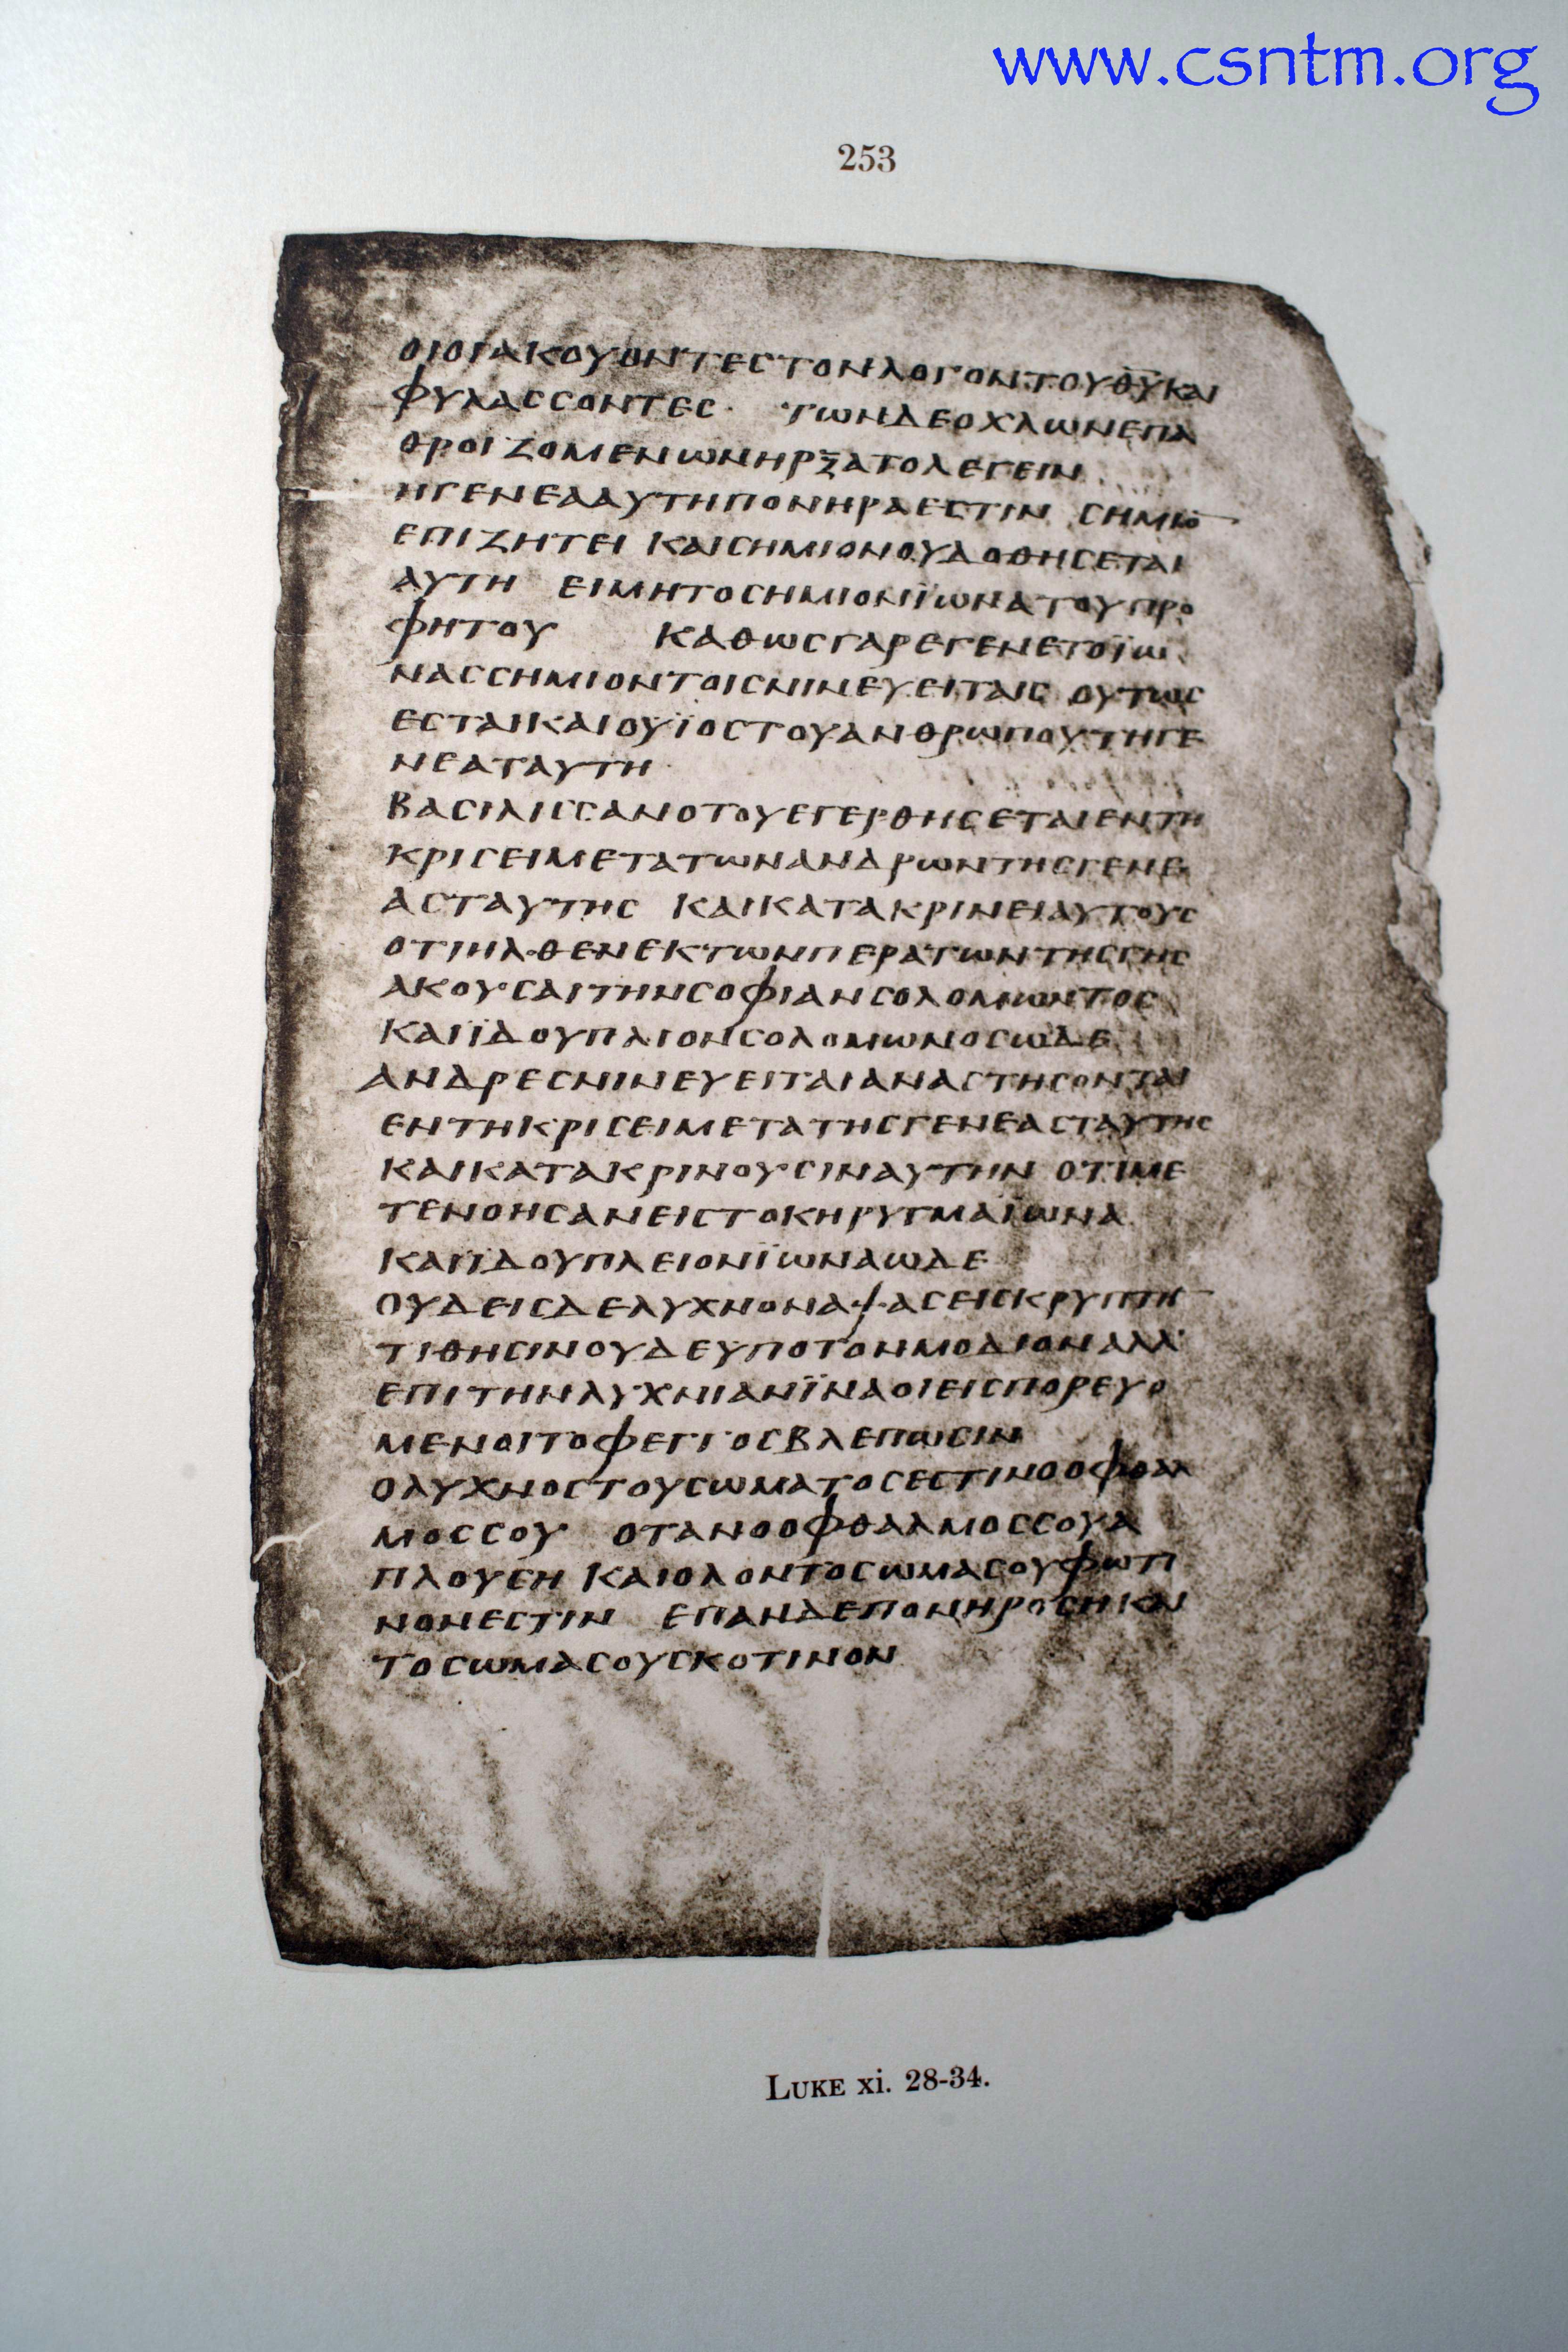 www.csntm.org
253
ΟΙΟΙΑΚΟΥΟΝΤΕΣΤΟΝΛΟΓΟΝΤΟΥΘΥΚΑΙ
ΦΥΛΑΣΣΟΝΤΕΣ· ΤΩΝΔΕΟΧΛΩΝΕΠΑ
ΘΡΟΙΖΟΜΕΝΩΝΗΡΞΑΤΟΛΕΓΕΙΝ
ΗΓΕΝΕΑΑΥΤΗΠΟΝΗΡΑΕΣΤΙΝ ΣΗΜΙΟ̅
ΕΠΙΖΗΤΕΙ ΚΑΙΣΗΜΙΟΝΟΥΔΟΘΗΣΕΤΑΙ
ΑΥΤΗ ΕΙΜΗΤΟΣΗΜΙΟΝΪΩΝΑΤΟΥΠΡΟ
ΦΗΤΟΥ ΚΑΘΩΣΓΑΡΕΓΕΝΕΤΟΪΩ
ΝΑΣΣΗΜΙΟΝΤΟΙΣΝΙΝΕΥΕΙΤΑΙΣ ΟΥΤΩΣ
ΕΣΤΑΙΚΑΙΟΥΪΟΣΤΟΥΑΝΘΡΩΠΟΥΤΗΓΕ
ΝΕΑΤΑΥΤΗ
ΒΑΣΙΛΙΣΣΑΝΟΤΟΥΕΓΕΡΘΗΣΕΤΑΙΕΝΤΗ
ΚΡΙΣΕΙΜΕΤΑΤΩΝΑΝΔΡΩΝΤΗΣΓΕΝΕ
ΑΣΤΑΥΤΗΣ ΚΑΙΚΑΤΑΚΡΙΝΕΙΑΥΤΟΥΣ
ΟΤΙΗΛΘΕΝΕΚΤΩΝΠΕΡΑΤΩΝΤΗΣΓΗΣ
ΑΚΟΥΣΑΙΤΗΝΣΟΦΙΑΝΣΟΛΟΜΩΝΤΟΣ
ΚΑΙΪΔΟΥΠΛΙΟΝΣΟΛΟΜΩΝΟΣΩΔΕ
ΑΝΔΡΕΣΝΙΝΕΥΕΙΤΑΙΑΝΑΣΤΗΣΟΝΤΑΙ
ΕΝΤΗΚΡΙΣΕΙΜΕΤΑΤΗΣΓΕΝΕΑΣΤΑΥΤΗΣ
ΚΑΙΚΑΤΑΚΡΙΝΟΥΣΙΝΑΥΤΗΝ ΟΤΙΜΕ
ΤΕΝΟΗΣΑΝΕΙΣΤΟΚΗΡΥΓΜΑΪΩΝΑ
ΚΑΙΪΔΟΥΠΛΕΙΟΝΪΩΝΑΩΔΕ
ΟΥΔΕΙΣΔΕΛΥΧΝΟΝΑΨΑΣΕΙΣΚΡΥΠΤΗ̅
ΤΙΘΗΣΙΝΟΥΔΕΥΠΟΤΟΝΜΟΔΙΟΝΑΛΛ'
ΕΠΙΤΗΝΛΥΧΝΙΑΝΪΝΑΟΙΕΙΣΠΟΡΕΥΟ
ΜΕΝΟΙΤΟΦΕΓΓΟΣΒΛΕΠΩΣΙΝ
ΟΛΥΧΝΟΣΤΟΥΣΩΜΑΤΟΣΕΣΤΙΝΟΟΦΘΑΛ
ΜΟΣΣΟΥ ΟΤΑΝΟΟΦΘΑΛΜΟΣΣΟΥΑ
ΠΛΟΥΣΗ ΚΑΙΟΛΟΝΤΟΣΩΜΑΣΟΥΦΩΤΙ
ΝΟΝΕΣΤΙΝ ΕΠΑΝΔΕΠΟΝΗΡΟΣΗΚΑΙ
ΤΟΣΩΜΑΣΟΥΣΚΟΤΙΝΟΝ
LUKE xi. 28-34.